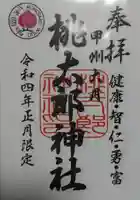 奉拝
甲州大月
健康・智・仁・勇・富
桃太郎神社
令和四年正月限定